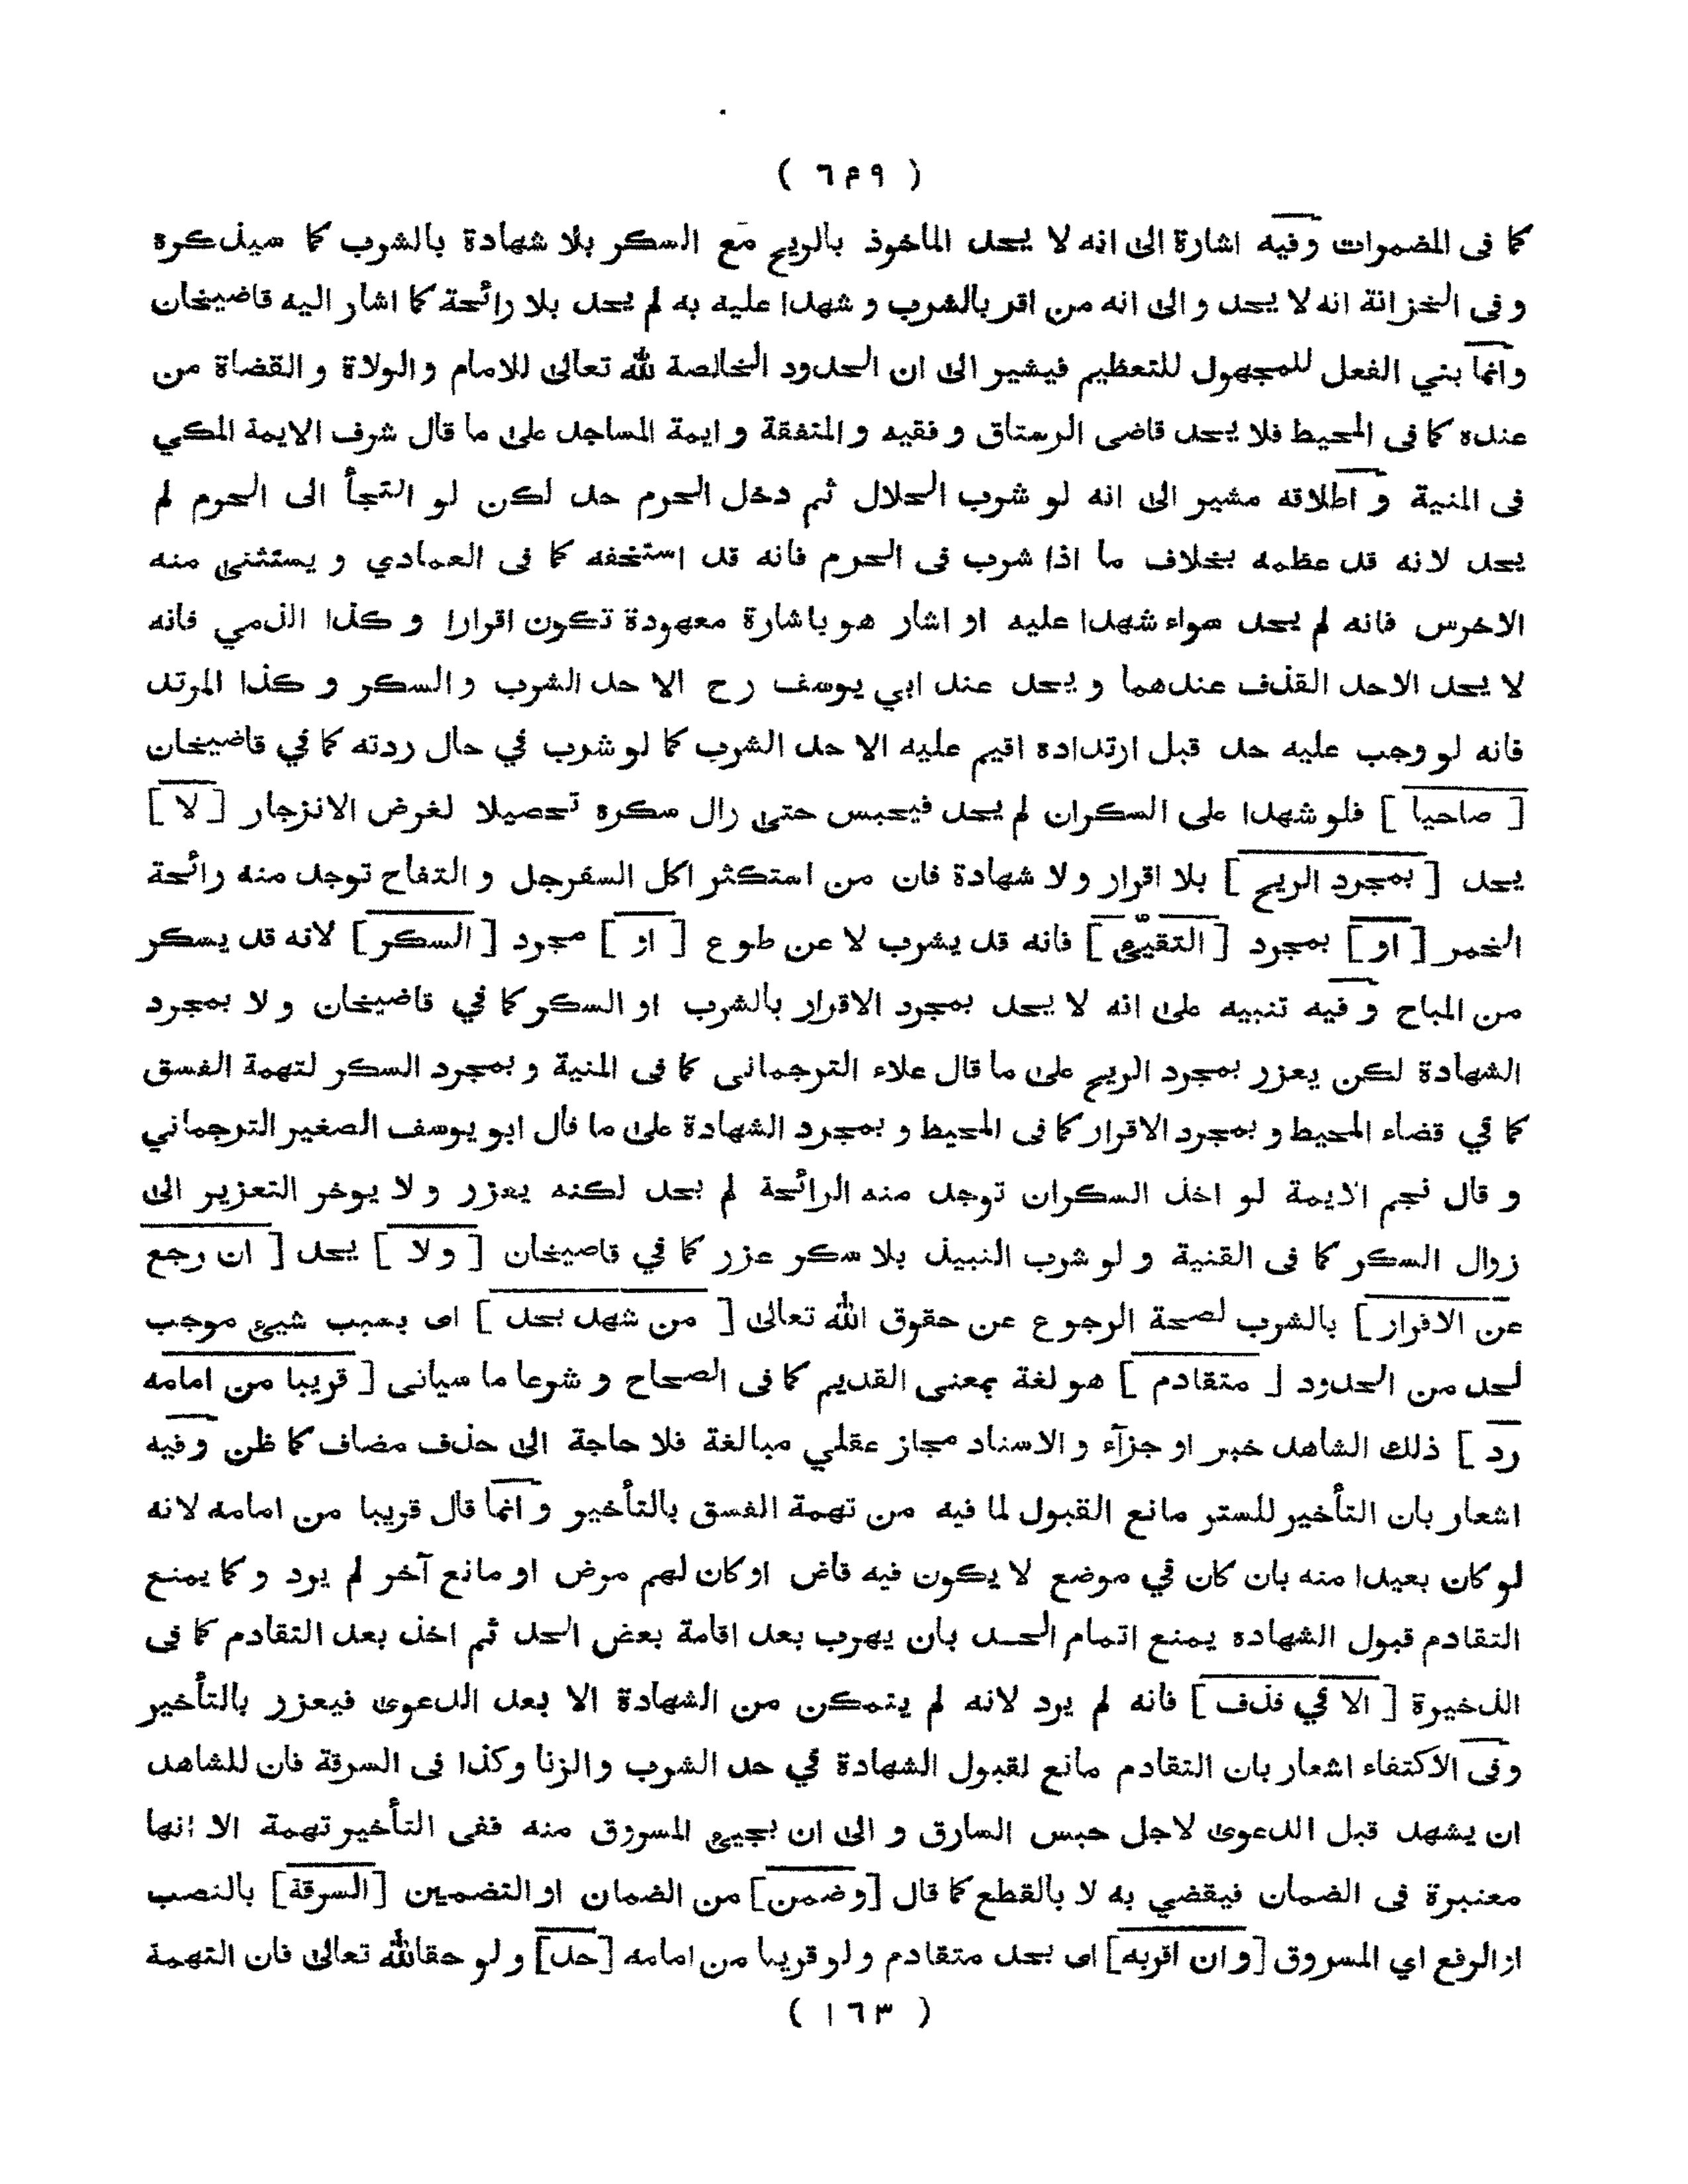 ( ٦٤٩ )
كما فى المضمرات وفيه اشارة الى انه لا يحد الماخوذ بالريح مع السكر بلا شهادة بالشرب كما سيذكره
و فى الخزانة انه لا يحد و الى انه من اقر بالشرب و شهدا عليه به لم يحد بلا رائحة كما اشار اليه قاضيخان
وانما بني الفعل للمجهول للتعظيم فيشير الى ان الحدود الخالصة لله تعالى للامام و الولاة و القضاة من
عنده كما فى المحيط فلا يحد قاضى الرستاق و فقيه و المتفقة و ايمة المساجد على ما قال شرف الايمة المكي
فى المنية و اطلاقه مشير الى انه لو شرب الحلال ثم دخل الحرم حد لكن لو التجأ الى الحرم لم
يحد لانه قد عظمه بخلاف ما اذا شرب فى الحرم فانه قد استخفه كما فى العمادي و يستثنى منه
الاخرس فانه لم يحد سواء شهدا عليه او اشار هو باشارة معهودة تكون اقرارا و كذا الذمي فانه
لا يحد الاحد القذف عندهما و يحد عند ابي يوسف رح الا حد الشرب و السكر و كذا المرتد
فانه لو وجب عليه حد قبل ارتداده اقيم عليه الا حد الشرب كما لو شرب في حال ردته كما في قاضيخان
[ صاحيا ] فلو شهدا على السكران لم يحد فيحبس حتى زال سكره تحصيلا لغرض الانزجار [ لا ]
يحد [ بمجرد الريح ] بلا اقرار و لا شهادة فان من استكثر اكل السفرجل و التفاح توجد منه رائحة
الخمر [ او ] بمجرد [ التقيّئ ] فانه قد يشرب لا عن طوع [ او ] مجرد [ السكر ] لانه قد يسكر
من المباح و فيه تنبيه على انه لا يحد بمجرد الاقرار بالشرب او السكر كما في قاضيخان و لا بمجرد
الشهادة لكن يعزر بمجرد الريح على ما قال علاء الترجمانى كما فى المنية و بمجرد السكر لتهمة الفسق
كما في قضاء المحيط و بمجرد الاقرار كما فى المحيط و بمجرد الشهادة على ما قال ابو يوسف الصغير الترجماني
و قال نجم الايمة لو اخذ السكران توجد منه الرائحة لم يحد لكنه يعزر و لا يوخر التعزير الى
زوال السكر كما فى القنية و لو شرب النبيذ بلا سكر عزر كما في قاضيخان [ و لا ] يحد [ ان رجع
عن الاقرار ] بالشرب لصحة الرجوع عن حقوق الله تعالى [ من شهد بحد ] اى بسبب شيئ موجب
لحد من الحدود [ متقادم ] هو لغة بمعنى القديم كما فى الصحاح و شرعا ما سياتى [ قريبا من امامه
رد ] ذلك الشاهد خبر او جزآء و الاسناد مجاز عقلي مبالغة فلا حاجة الى حذف مضاف كما ظن و فيه
اشعار بان التأخير للستر مانع القبول لما فيه من تهمة الفسق بالتأخير و انما قال قريبا من امامه لانه
لو كان بعيدا منه بان كان في موضع لا يكون فيه قاض او كان لهم مرض او مانع آخر لم يرد و كما يمنع
التقادم قبول الشهاده يمنع اتمام الحد بان يهرب بعد اقامة بعض الحد ثم اخذ بعد التقادم كما فى
الذخيرة [ الا في قذف ] فانه لم يرد لانه لم يتمكن من الشهادة الا بعد الدعوى فيعزر بالتأخير
وفى الاكتفاء اشعار بان التقادم مانع لقبول الشهادة في حد الشرب و الزنا وكذا فى السرقة فان للشاهد
ان يشهد قبل الدعوى لاجل حبس السارق و الى ان يجيئ المسروق منه ففى التأخير تهمة الا انها
معتبرة فى الضمان فيقضي به لا بالقطع كما قال [وضمن] من الضمان او التضمين [السرقة] بالنصب
او الرفع اي المسروق [وان اقربه] اى بحد متقادم و لو قريبا من امامه [حد] و لو حقالله تعالى فان التهمة
( ١٦٣ )